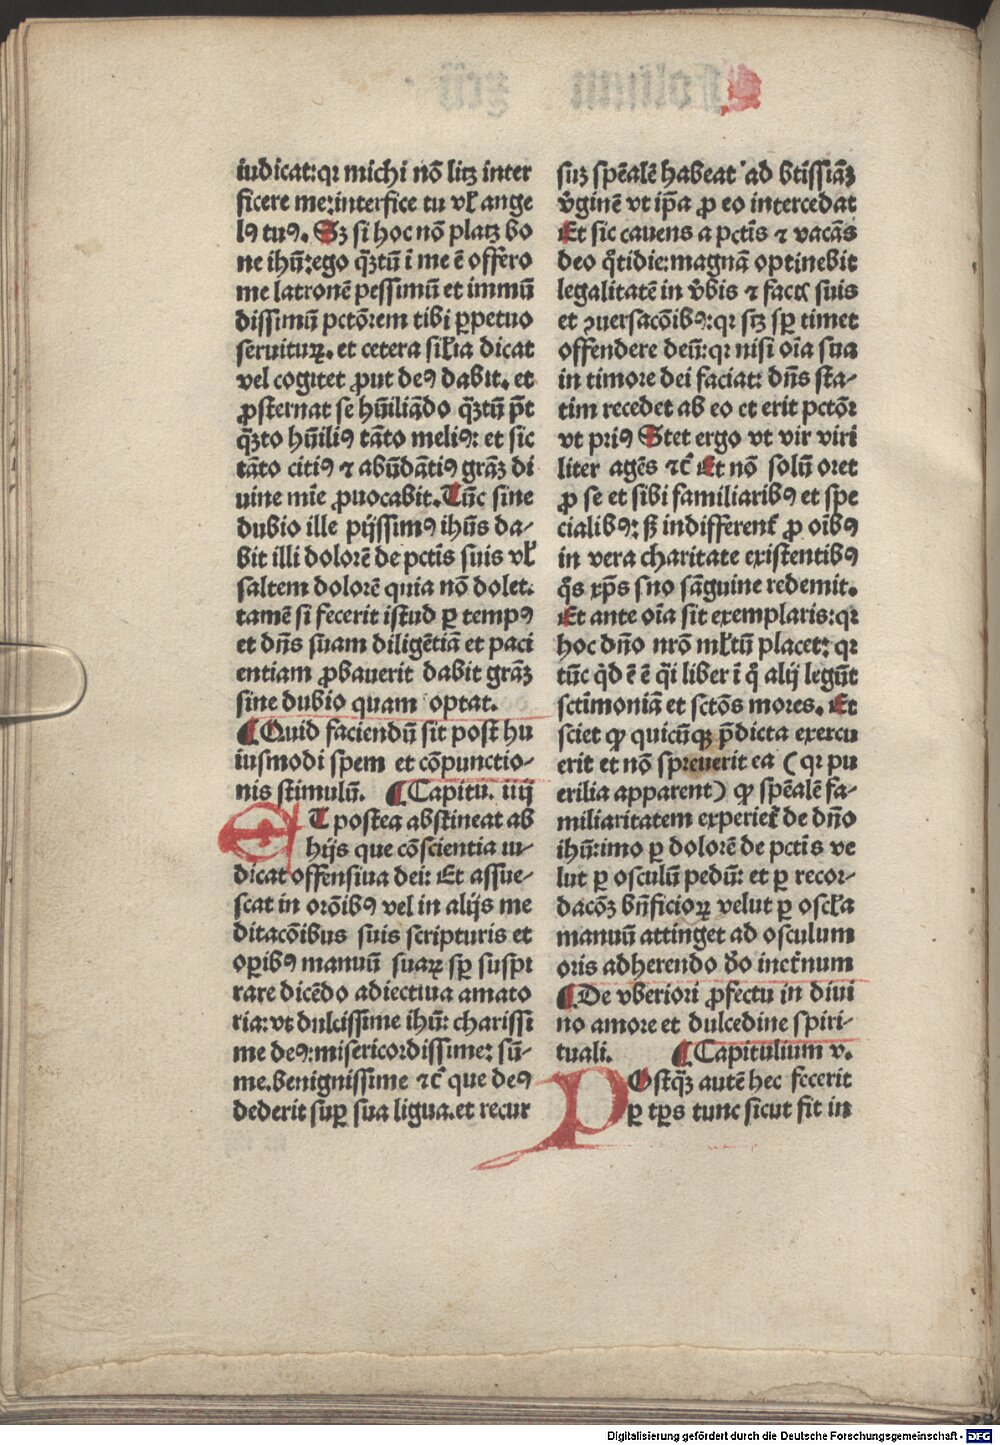 iudicat:qꝛ michi nō litꝫ inter
ficere me:interfice tu vƚ ange
lꝰ tuꝰ. Sꝫ si hoc nō platꝫ bo
ne ihū:ego qͣꝫtū ī me ē offero
me latronē pessimū et immū
dissimū pctōrem tibi ꝑpetuo
seruiturꝝ. et cetera siƚia dicat
vel cogitet ꝓut deꝰ dabit. et
ꝓsternat se hūiliādo qͣꝫtū pōt
qͣꝫto hūiliꝰ tāto meliꝰ: et sic
tāto citiꝰ ⁊ abūdātiꝰ grāꝫ di
uine mīe ꝓuocabit. Tūc sine
dubio ille pijssimꝰ ihūs da-
bit illi dolorē de pctīs suis vƚ
saltem dolorē quia nō dolet.
tamē si fecerit istud ꝑ tempꝰ
et dn̄s suam diligētiā et paci
entiam ꝓbauerit dabit grāꝫ
sine dubio quam optat.
¶ Quid faciendū sit post hu
iusmodi spem et cōpunctio-
nis stimulū. ¶ Capitu. iiij
ET postea abstineat ab
hijs que cōscientia iu-
dicat offensiua dei: Et assue-
scat in orōibꝰ vel in alijs me
ditacōibus suis scripturis et
oꝑibꝰ manuū suaꝝ sꝑ suspi
rare dicēdo adiectiua amato
ria: vt dulcissime ihū: charissi
me deꝰ: misericordissime: sū-
me. benignissime ⁊c̄ que deꝰ
dederit suꝑ sua ligua. et recur
sūꝫ spēalē habeat ad btissiāꝫ
v̄ginē vt ip̄a ꝓ eo intercedat
Et sic cauens a pctīs ⁊ vacās
deo qͦtidie: magnā optinebit
legalitatē in v̄bis ⁊ factꝭ suis
et ꝯuersacōibꝰ: qꝛ sitꝫ sꝑ timet
offendere deū: qꝛ nisi oīa sua
in timore dei faciat: dn̄s sta-
tim recedet ab eo et erit pctōr
vt priꝰ Stet ergo vt vir viri
liter agēs ⁊c̄ Et nō solū oret
ꝓ se et sibi familiaribꝰ et spe
cialibꝰ: sꝫ indifferent̄ ꝓ oībꝰ
in vera charitate existentibꝰ
qͦs xp̄s suo sāguine redemit.
Et ante oīa sit exemplaris: qꝛ
hoc dn̄o nr̄o mƚtū placet: qꝛ
tūc qͦd ē ē qͣi liber ī qͦ alij legūt
sctīmoniā et sctōs mores. Et
sciet ꝙ quicūqꝫ p̄dicta exercu
erit et nō spreuerit ea (qꝛ pu
erilia apparent) ꝙ spēalē fa-
miliaritatem experiet̄ de dn̄o
ihū: imo ꝑ dolorē de pctīs ve
lut ꝑ osculū pedū: et ꝑ recor-
dacōꝫ bn̄ficioꝝ velut ꝑ oscƚa
manuū attinget ad osculum
oris adherendo dōo inct̄num
¶ De vberiori ꝓfectu in diui
no amore et dulcedine spiri-
tuali. ¶ Capitulium v.
POstqͣꝫ autē hec fecerit
ꝑ tꝑs tunc sicut fit in
Digitalisierung gefördert durch die Deutsche Forschungsgemeinschaft - DFG